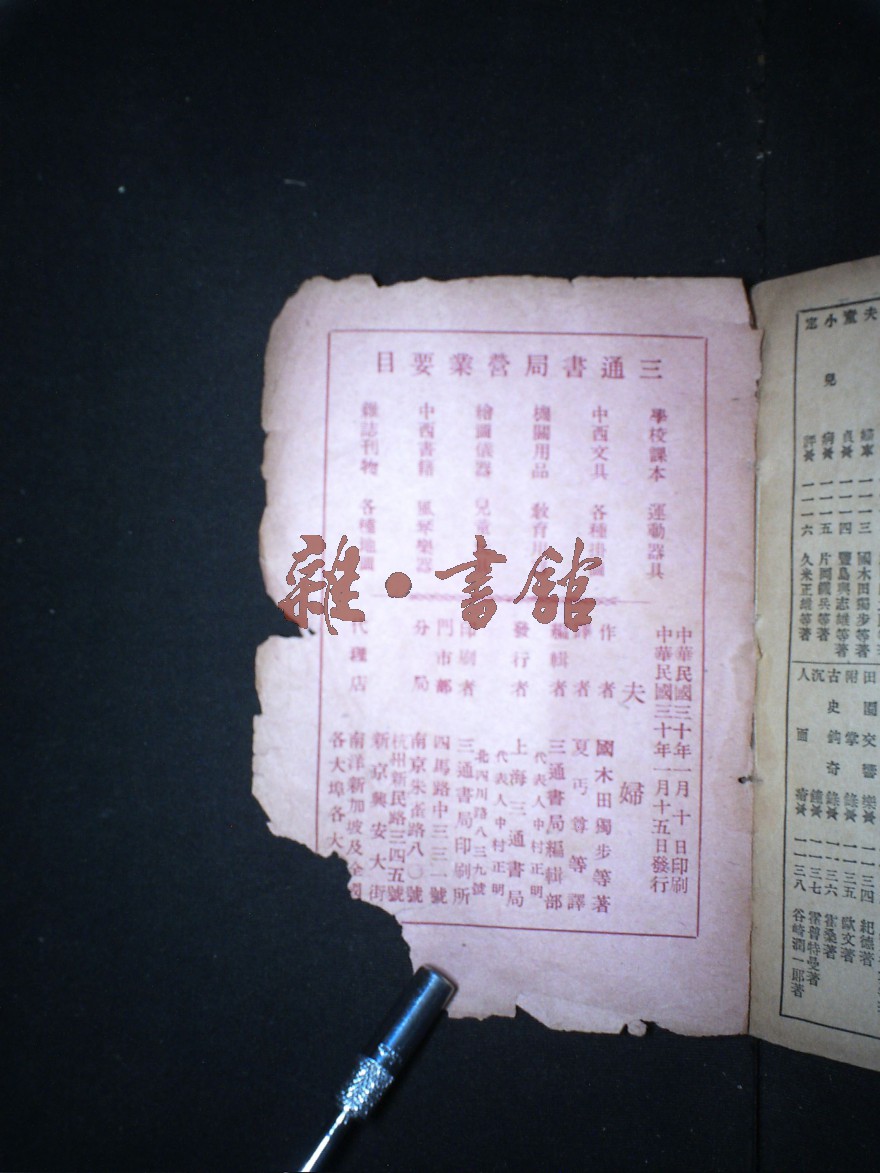 三通書局營業要目
學校課本 運動器具
中西文具 各種
機關用品 教育
繪圖儀器 兒童
中西書籍 風琴樂器
雜誌刊物 各種地圖
雜·書館
中華民國三十年一月十日印刷
中華民國三十年一月十五日發行
夫婦
作者 國木田獨步等著
譯者 夏丏尊等譯
編輯者 三通書局編輯部
代表人中村正明
發行者 上海三通書局
代表人中村正明
北四川路八三九號
印刷者 三通書局印刷所
門市部 四馬路中三三一號
分局 南京朱雀路八〇號
杭州新民路三四五號
新京興安大街
代理店 南洋新加坡及全
各大埠各大
夫
童貞★ 一一一四 豐島與志雄等著
小兒病★ 一一一五 片岡鐵兵等著
定評★ 一一一六 久米正雄等著
一一一三 國木田獨步等著
田園交響樂★ 一一三四 紀德著
附掌錄★ 一一三五 歐文著
古史鉤奇錄★ 一一三六 霍桑著
沉鐘★ 一一三七 霍普特曼著
人面瘡★ 一一三八 谷崎潤一郎著